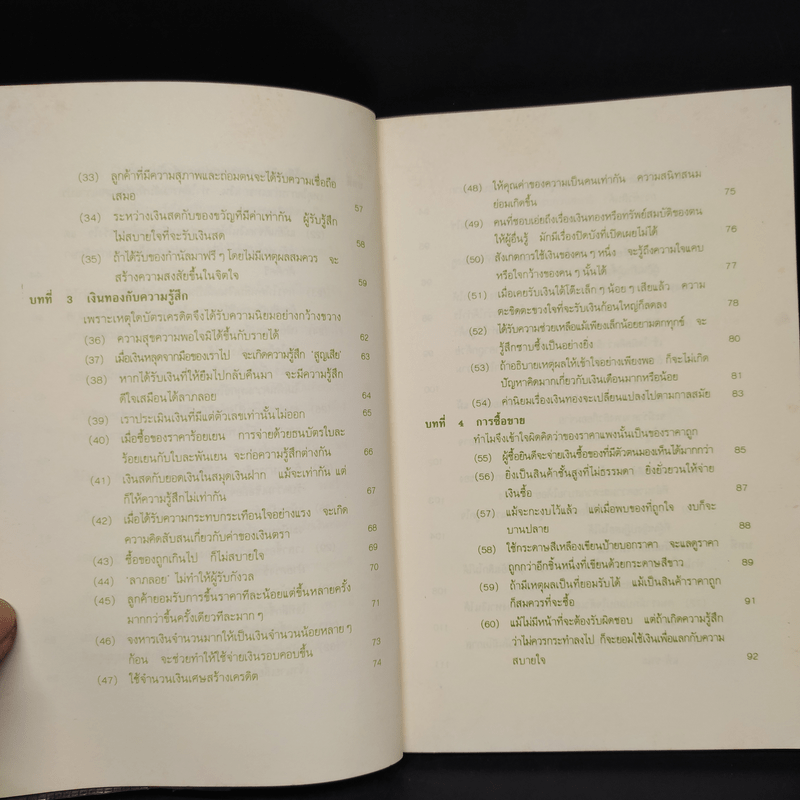 (33) ลูกค้าที่มีความสุภาพและถ่อมตนจะได้รับความเชื่อถือ
เสมอ 57
(34) ระหว่างเงินสดกับของขวัญที่มีค่าเท่ากัน ผู้รับรู้สึก
ไม่สบายใจที่จะรับเงินสด 58
(35) ถ้าได้รับของกำนัลมาฟรี ๆ โดยไม่มีเหตุผลสมควร จะ
สร้างความสงสัยขึ้นในจิตใจ 59
บทที่ 3 เงินทองกับความรู้สึก
เพราะเหตุใดบัตรเครดิตจึงได้รับความนิยมอย่างกว้างขวาง
(36) ความสุขความพอใจมิได้ขึ้นกับรายได้ 62
(37) เมื่อเงินหลุดจากมือของเราไป จะเกิดความรู้สึก 'สูญเสีย' 63
(38) หากได้รับเงินที่ให้ยืมไปกลับคืนมา จะมีความรู้สึก
ดีใจเสมือนได้ลาภลอย 64
(39) เราประเมินเงินที่มีแต่ตัวเลขเท่านั้นไม่ออก 65
(40) เมื่อซื้อของราคาร้อยเยน การจ่ายด้วยธนบัตรใบละ
ร้อยเยนกับใบละพันเยน จะก่อความรู้สึกต่างกัน 66
(41) เงินสดกับยอดเงินในสมุดเงินฝาก แม้จะเท่ากัน แต่
ก็ให้ความรู้สึกไม่เท่ากัน 67
(42) เมื่อได้รับความกระทบกระเทือนใจอย่างแรง จะเกิด
ความคิดสับสนเกี่ยวกับค่าของเงินตรา 68
(43) ซื้อของถูกเกินไป ก็ไม่สบายใจ 69
(44) 'ลาภลอย' ไม่ทำให้ผู้รับกังวล 70
(45) ลูกค้ายอมรับการขึ้นราคาทีละน้อยแต่ขึ้นหลายครั้ง
มากกว่าขึ้นครั้งเดียวทีละมาก ๆ 71
(46) จงหารเงินจำนวนมากให้เป็นเงินจำนวนน้อยหลาย ๆ
ก้อน จะช่วยทำให้ใช้จ่ายเงินรอบคอบขึ้น 73
(47) ใช้จำนวนเงินเศษสร้างเครดิต 74
(48) ให้คุณค่าของความเป็นคนเท่ากัน ความสนิทสนม
ย่อมเกิดขึ้น 75
(49) คนที่ชอบเอ่ยถึงเรื่องเงินทองหรือทรัพย์สมบัติของตน
ให้ผู้อื่นรู้ มักมีเรื่องปิดบังที่เปิดเผยไม่ได้ 76
(50) สังเกตการใช้เงินของคน ๆ หนึ่ง จะรู้ถึงความใจแคบ
หรือใจกว้างของคน ๆ นั้นได้ 77
(51) เมื่อเคยรับเงินใต้โต๊ะเล็ก ๆ น้อย ๆ เสียแล้ว ความ
ตะขิดตะขวงใจที่จะรับเงินก้อนใหญ่ก็ลดลง 78
(52) ได้รับความช่วยเหลือแม้เพียงเล็กน้อยยามตกทุกข์ จะ
รู้สึกซาบซึ้งเป็นอย่างยิ่ง 80
(53) ถ้าอธิบายเหตุผลให้เข้าใจอย่างเพียงพอ ก็จะไม่เกิด
ปัญหาคิดมากเกี่ยวกับเงินเดือนมากหรือน้อย 81
(54) ค่านิยมเรื่องเงินทองจะเปลี่ยนแปลงไปตามกาลสมัย 83
บทที่ 4 การซื้อขาย
ทำไมจึงเข้าใจผิดคิดว่าของราคาแพงนั้นเป็นของราคาถูก
(55) ผู้ซื้อยินดีจะจ่ายเงินซื้อของที่มีตัวตนมองเห็นได้มากกว่า 85
(56) ยิ่งเป็นสินค้าชั้นสูงที่ไม่ธรรมดา ยิ่งยั่วยวนให้จ่าย
เงินซื้อ 87
(57) แม้จะกะงบไว้แล้ว แต่เมื่อพบของที่ถูกใจ งบก็จะ
บานปลาย 88
(58) ใช้กระดาษสีเหลืองเขียนป้ายบอกราคา จะแลดูราคา
ถูกกว่าอีกชิ้นหนึ่งที่เขียนด้วยกระดาษสีขาว 89
(59) ถ้ามีเหตุผลเป็นที่ยอมรับได้ แม้เป็นสินค้าราคาถูก
ก็สมควรที่จะซื้อ 91
(60) แม้ไม่มีหน้าที่จะต้องรับผิดชอบ แต่ถ้าเกิดความรู้สึก
ว่าไม่ควรกระทำลงไป ก็จะยอมใช้เงินเพื่อแลกกับความ
สบายใจ 92